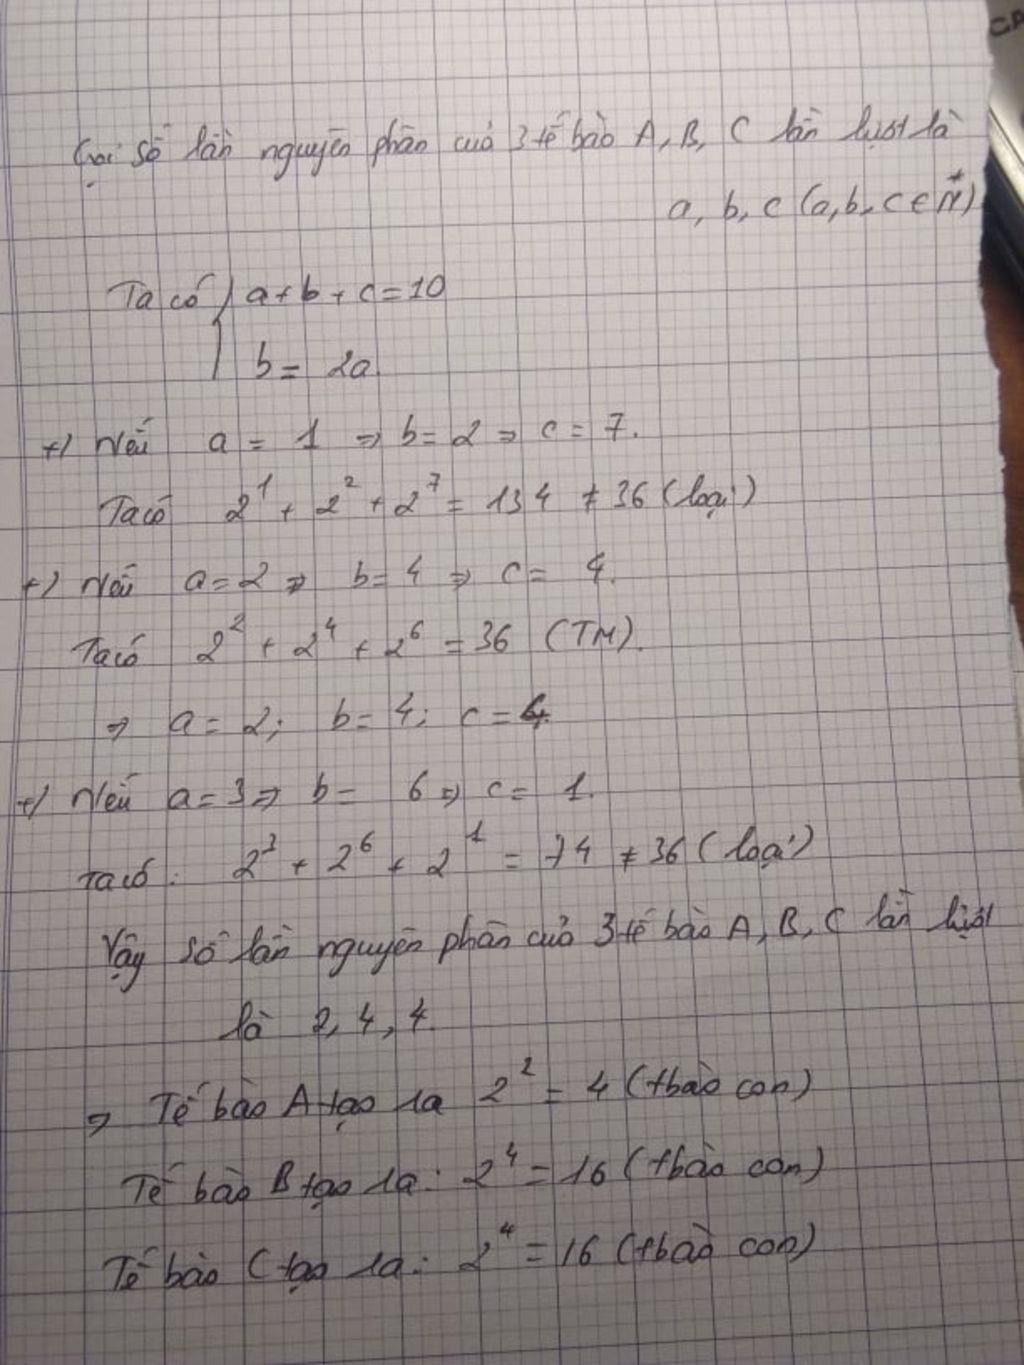 Gọi số lần nguyên phân của 3 tế bào A, B, C lần lượt là
a, b, c (a, b, c ∈ N*)
Ta có { a + b + c = 10
b = 2a
+) Nếu a = 1 ⇒ b = 2 ⇒ c = 7.
Ta có 2^1 + 2^2 + 2^7 = 134 ≠ 36 (loại)
+) Nếu a = 2 ⇒ b = 4 ⇒ c = 4.
Ta có 2^2 + 2^4 + 2^6 = 36 (TM).
⇒ a = 2; b = 4; c = 4
+) Nếu a = 3 ⇒ b = 6 ⇒ c = 1.
Ta có: 2^3 + 2^6 + 2^1 = 74 ≠ 36 (loại)
Vậy số lần nguyên phân của 3 tế bào A, B, C lần lượt
là 2, 4, 4.
⇒ Tế bào A tạo ra 2^2 = 4 (tbào con)
Tế bào B tạo ra: 2^4 = 16 (tbào con)
Tế bào C tạo ra: 2^4 = 16 (tbào con)